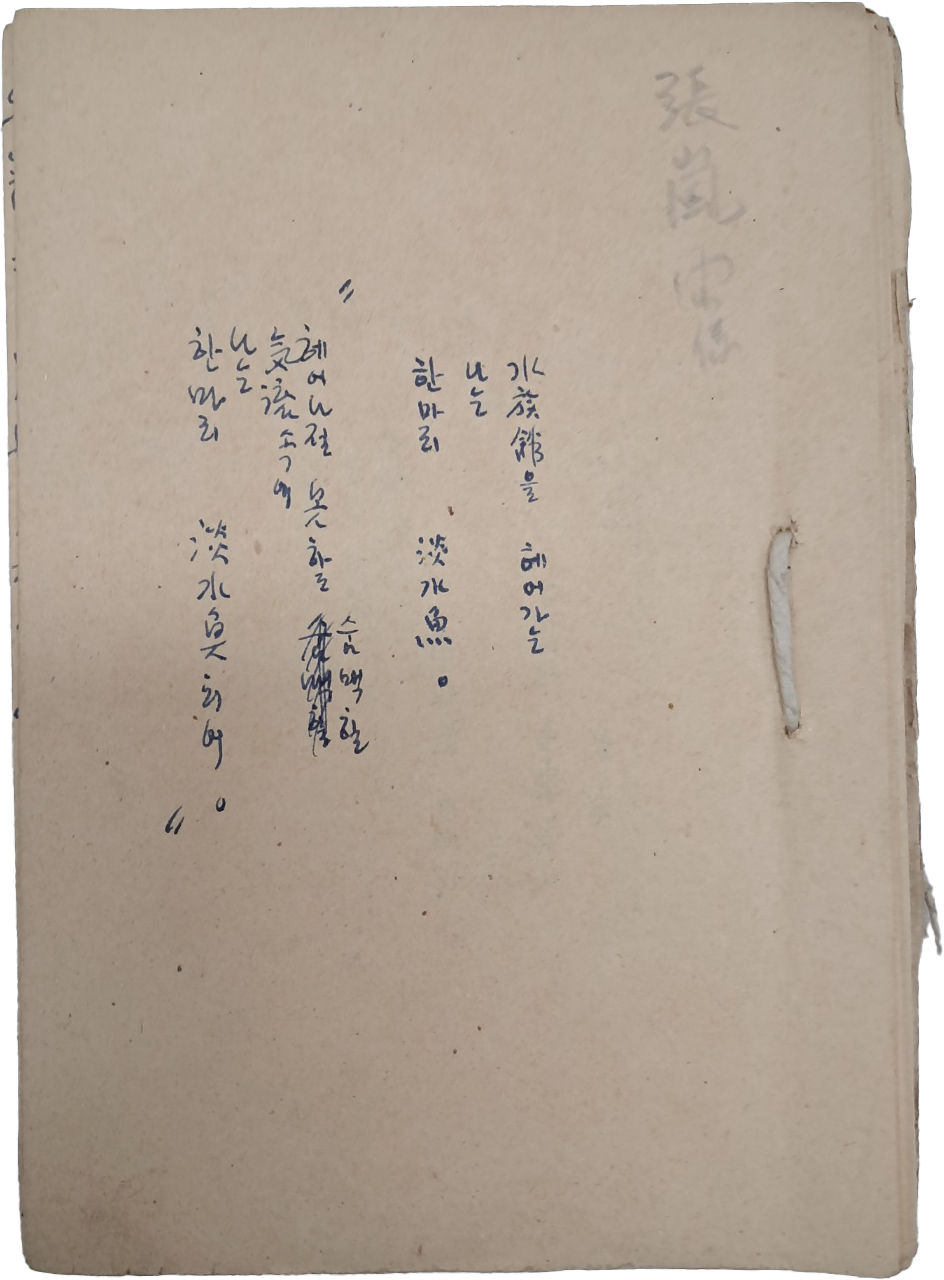 張嵐
水族館을 헤어가는
나는
한마리 淡水魚。
"헤어나질 못할 숨맥힐
氣流속에
나는
한마리 淡水魚되여。"